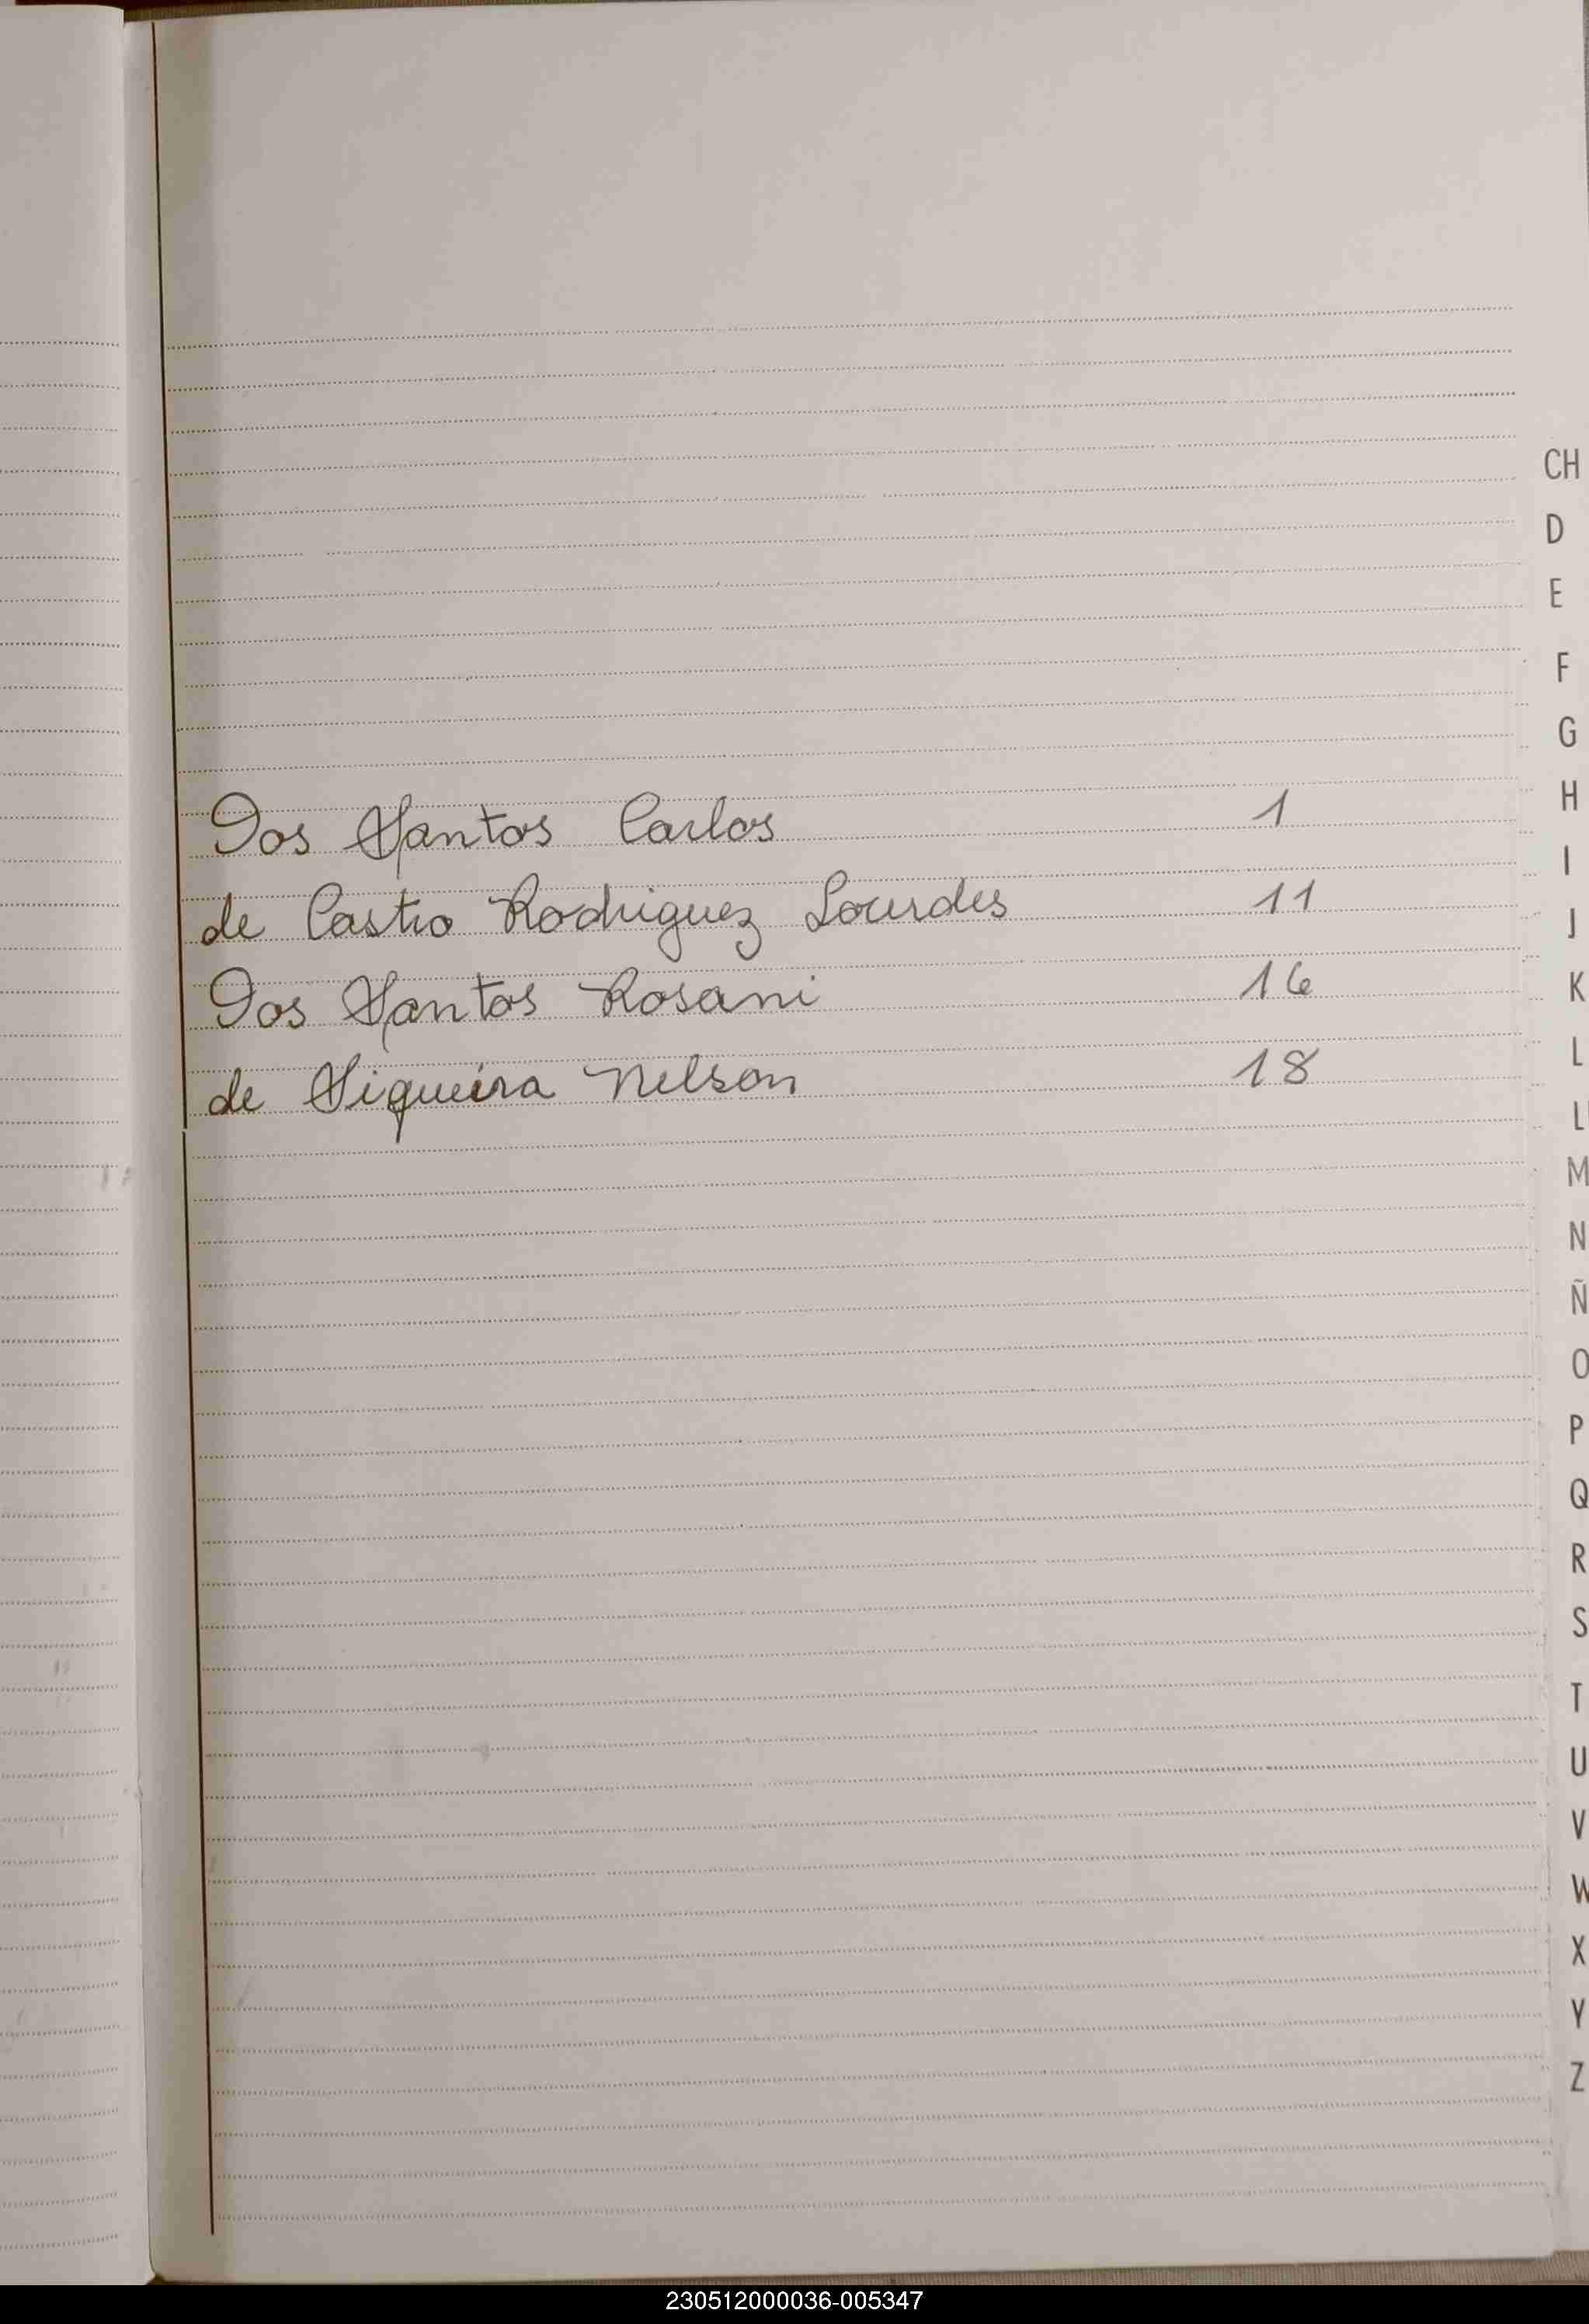 CH
D
E
F
G
H
Dos Santos Carlos 1
I
de Castro Rodriguez Lourdes 11
J
Dos Santos Rosani 16
K
L
de Siqueira Nelson 18
L
M
N
Ñ
O
P
Q
R
S
T
U
V
W
X
Y
Z
230512000036-005347